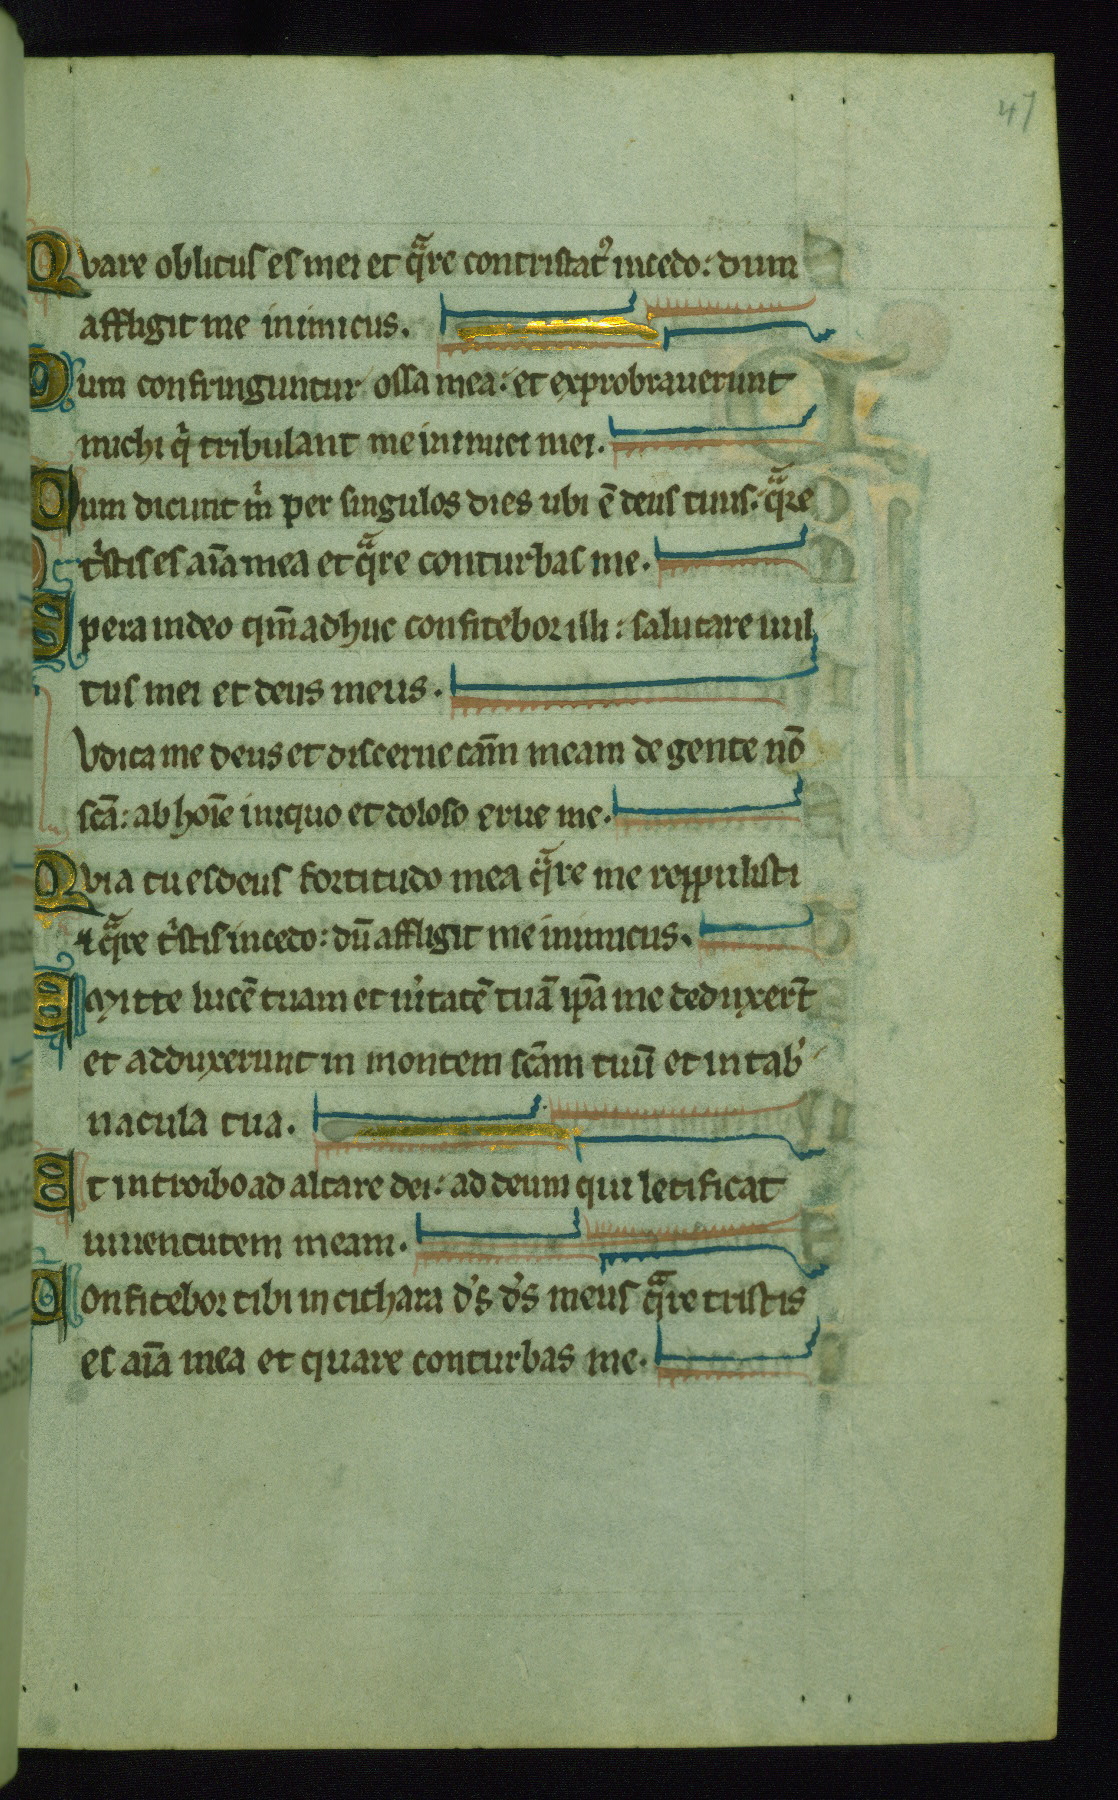 47
Quare oblitus es mei et qᵃre contristatꝰ incedo: dum
affligit me inimicus.
Dum confringuntur ossa mea: et exprobrauerunt
michi q̇ tribulant me inimici mei.
Dum dicunt m̉ per singulos dies ubi ē deus tuus. qᵃre
t̉stis es aīa mea et qᵃre conturbas me.
Spera in deo qm̄ adhuc confitebor illi: salutare uul
tus mei et deus meus.
Iudica me deus et discerne cām meam de gente nō
scā: ab hoīe iniquo et doloso erue me.
Quia tu es deus fortitudo mea qᵃre me reppulisti
⁊ qᵃre t̉stis incedo: dū affligit me inimicus.
Emitte lucē tuam et ủitatē tuā ip̄a me deduxer̄t
et adduxerunt in montem scm̄ tuū et in tab̉
nacula tua.
Et introibo ad altare dei: ad deum qui letificat
iuuentutem meam.
Confitebor tibi in cithara d̉s d̉s meus qᵃre tristis
es aīa mea et quare conturbas me.